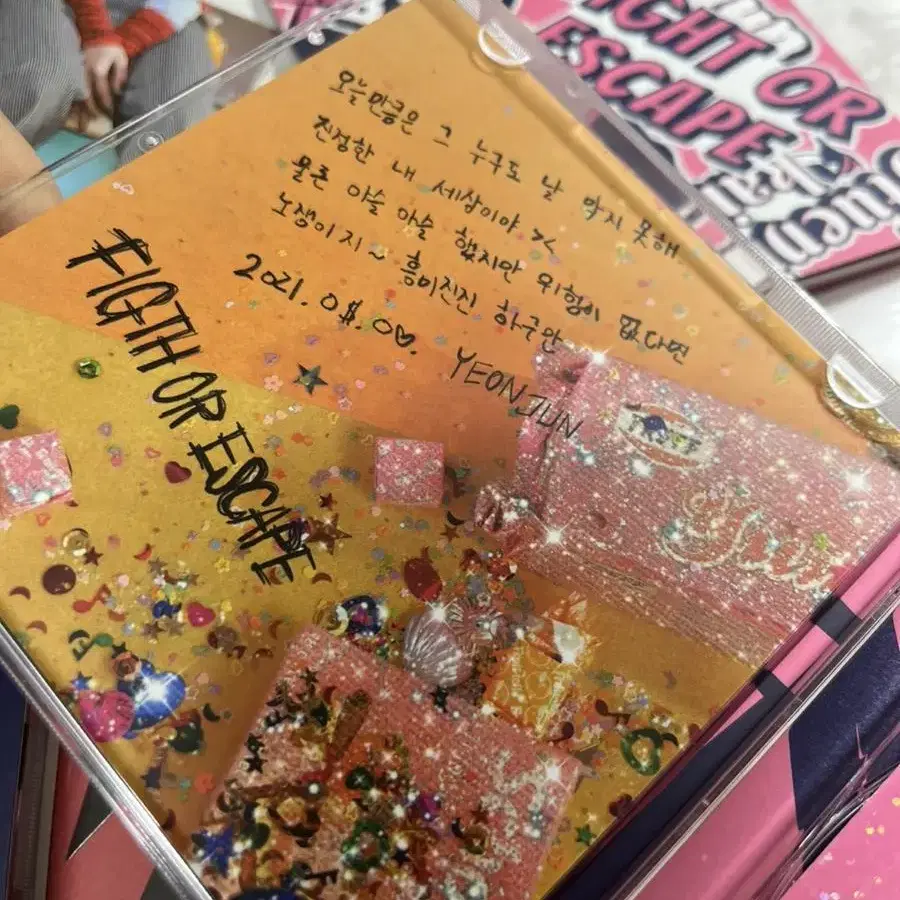 오늘만큼은 그 누구도 날 막지 못해
진정한 내 세상이야 ><
물론 아슬 아슬 했지만 위험이 없다면
노잼이지~ 흥미진진 하구만
2021.08.0♡.
YEONJUN
#FIGTH OR ESCAPE
FIGHT OR
ESCAPE